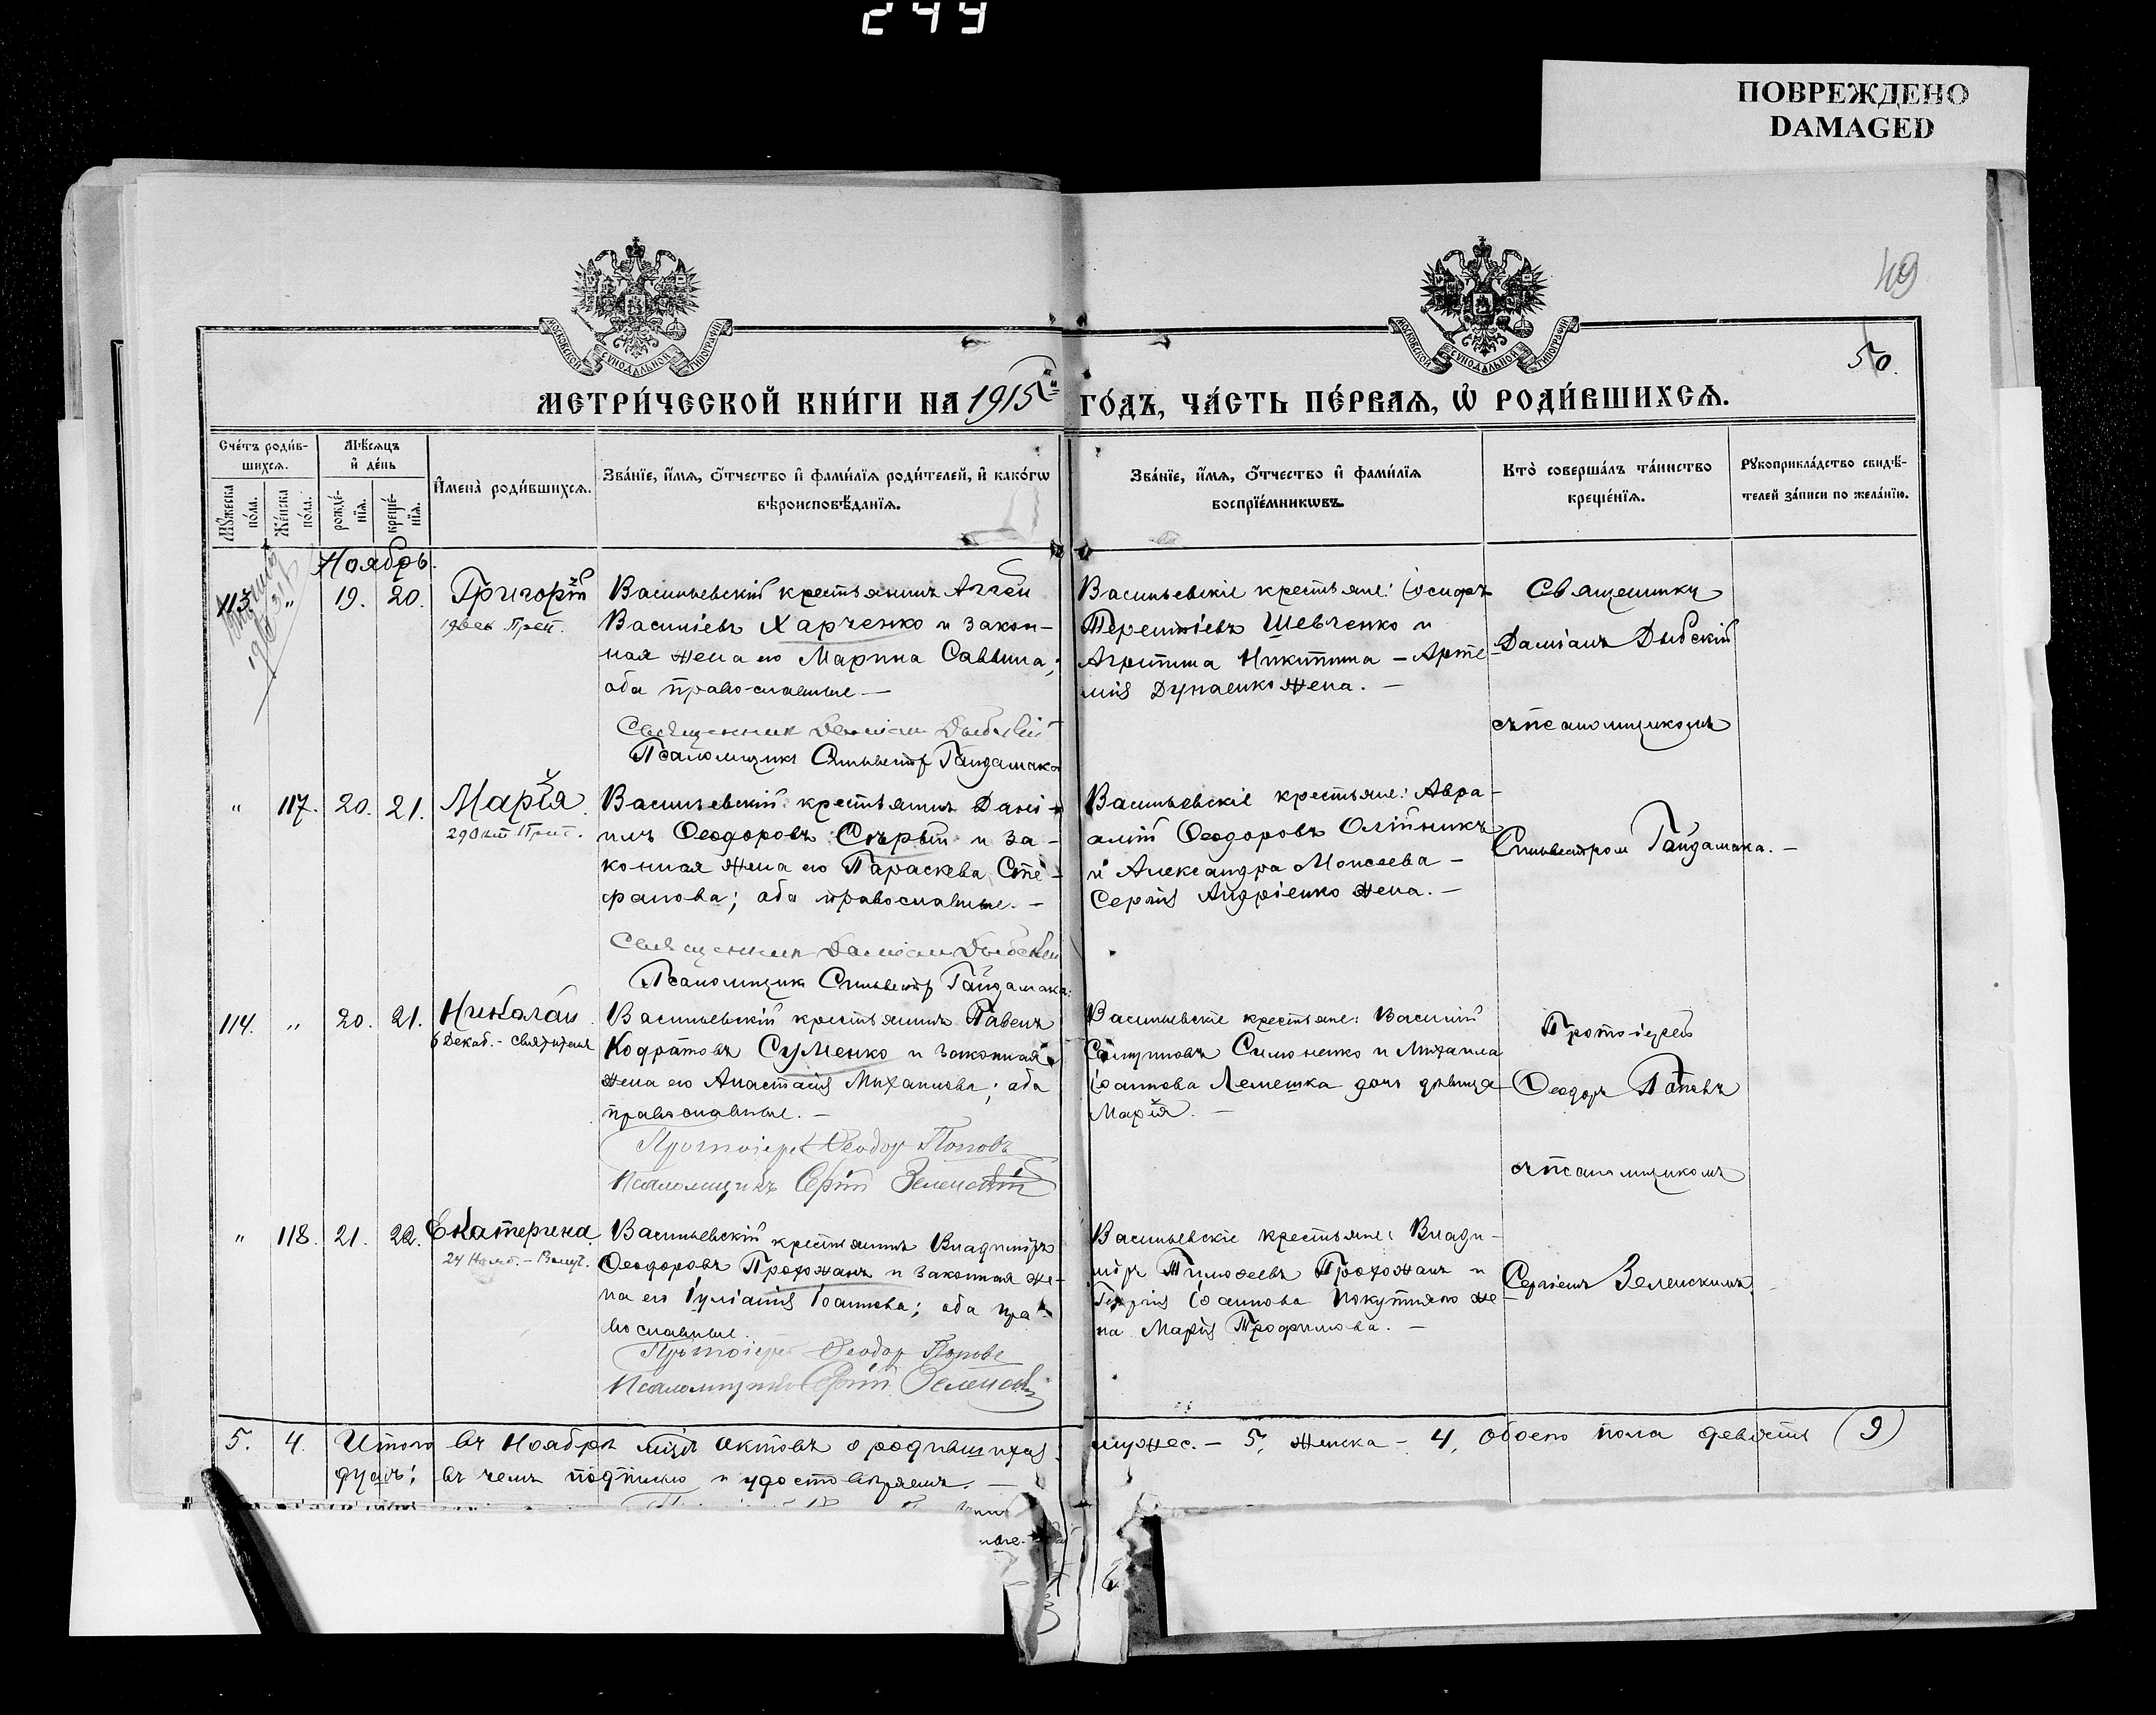 244
ПОВРЕЖДЕНО
DAMAGED
49
50.
МОСКОВСКОЙ СѴНОДАЛЬНОЙ ТИПОГРАФІИ
МОСКОВСКОЙ СѴНОДАЛЬНОЙ ТИПОГРАФІИ
МЕТРИ́ЧЕСКОЙ КНИ́ГИ НА 1915й ГО́ДЪ, ЧА́СТЬ ПЕ́РВАЯ, Ѡ҆ РОДИ́ВШИХСЯ.
Сче́тъ роди́в-
шихся.
Мꙋ́жеска по́ла.
Же́нска по́ла.
Мѣ́сяцъ
и҆ де́нь
рожде́-
нїя.
креще́-
нїя.
И҆мена̀ роди́вшихся.
Зва́нїе, и҆́мя, ѻ҆́тчество и҆ фами́лїя роди́телей, и҆ како́гѡ
вѣроисповѣ́данїя.
Зва́нїе, и҆́мя, ѻ҆́тчество и҆ фами́лїя
воспрїе́мникѡвъ.
Кто̀ соверша́лъ та́инство
креще́нїя.
Рꙋкоприкла́дство свидѣ́-
телей за́писи по жела́нїю.
Ноябрь.
113. " 19. 20. Григорій
Васильевскій крестьянинъ Аггей
Васильевъ Харченко и закон-
ная жена его Марина Саввина;
оба православные —
Священник Дамиан Дыбский
Псаломщикъ Сильвестр Гайдамака
Васильевскіе крестьяне: Іосифъ
Терентіевъ Шевченко и
Агрипина Никитина - Арте-
мія Дунаенко жена. —
Священникъ
Даміанъ Дыбскій
съ псаломщикомъ
" 117. 20. 21. Марія.
Васильевскій крестьянинъ Дані-
илъ Ѳеодоровъ Сѣрый и за-
конная жена его Параскева Сте-
фанова; оба православные. —
Священник Дамиан Дыбский
Псаломщик Сильвестр Гайдамака.
Васильевскіе крестьяне: Авра-
амій Ѳеодоровъ Олійникъ
и Александра Моисеева -
Сергія Андріенко жена. —
Сильвестром Гайдамака. —
114. " 20. 21. Николай
6 Декаб. - Святителя
Васильевскій крестьянинъ Павелъ
Кодратовъ Суменко и законная
жена его Анастасія Михаилова; оба
православные. —
Протоіерей Ѳеодор Поповъ
Псаломщикъ Сергій Зеленскій
Васильевскіе крестьяне: Василій
Симоненко и Михаила
Іоаннова Лемешка дочь дѣвица
Марія. —
Протоіерей
Ѳеодоръ Поповъ
съ псаломщикомъ
" 118. 21. 22. Екатерина.
Васильевскій крестьянинъ Владиміръ
Ѳеодоровъ Прохожанъ и законная же-
на его Іуліанія Іоаннова; оба пра-
вославные.
Протоіерей Ѳеодор Поповъ
Псаломщикъ Сергій Зеленскій
Васильевскіе крестьяне: Влади-
міръ Тимоѳеевъ Прохожанъ и
Георгія Іоаннова же-
на Марія Трофимова. —
Сергіемъ Зеленскимъ.
5. 4. Итого въ Ноябрѣ мцѣ актовъ о родившихся: мужес. - 5, женска - 4, обоего пола девять (9)
душъ; въ чемъ подписью и удостовѣряемъ. —